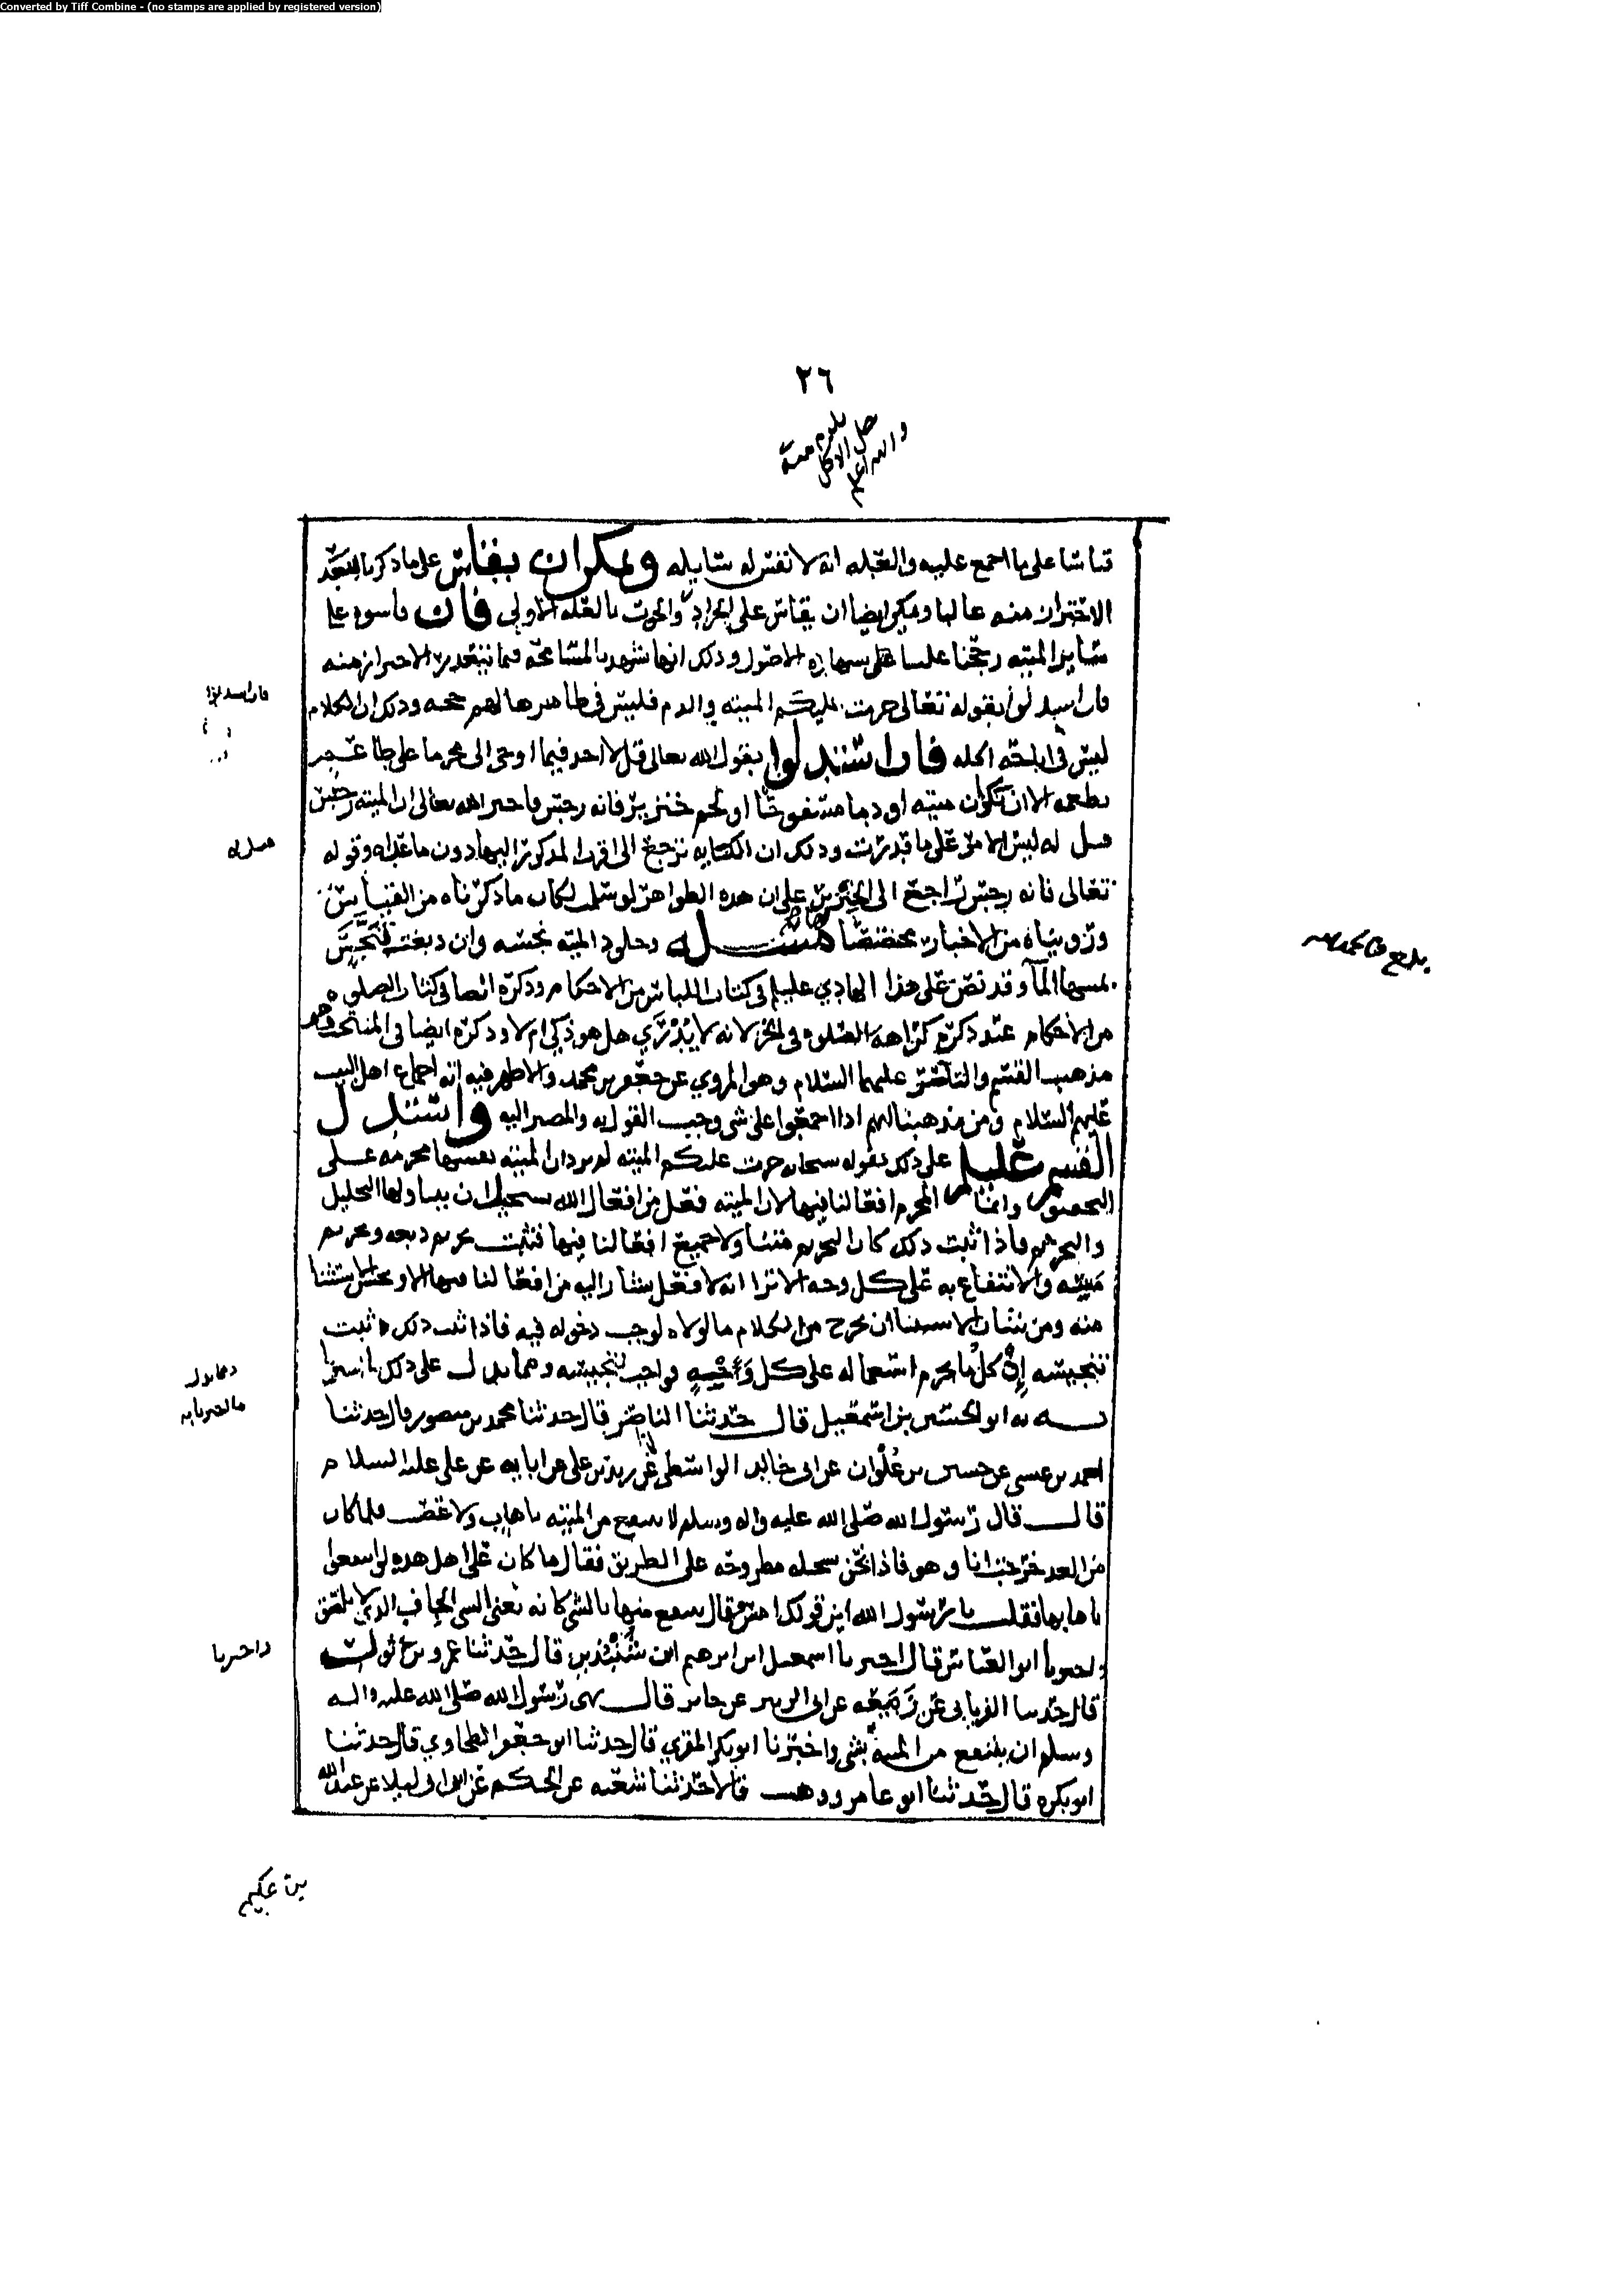 Converted by Tiff Combine - (no stamps are applied by registered version)
٢٦
يلزم منه
حل الاكل
والله اعلم
قياسا على ما اجمع عليه والعله انه لا نفس له سايله ويمكن ان يقاس على ما ذكرنا لتعذر
الاحتراز منه غالبا ويمكن ايضا ان يقاس على الجراد والحوت بالعله الاولى فان قاسوه على
ساير الميته رجحنا علتنا بشهاده الاصول وذلك انها تشهد بالمسامحه فيما يتعذر الاحتراز منه
فان استدلوا بقوله تعالى حرمت عليكم الميته والدم فليس في ظاهرها لهم حجه وذلك ان الكلام
ليس في اباحه اكله فان استدلوا بقول الله تعالى قل لا اجد فيما اوحي الي محرما على طاعم
يطعمه الا ان تكون ميته او دما مسفوحا او لحم خنزير فانه رجس فاخبر الله تعالى ان الميته رجس
قيل له ليس الامر على ما قدرت وذلك ان الكنايه ترجع الى اقرب المذكور اليها دون ما عداه وقوله
تعالى فانه رجس راجع الى الخنزير على ان هذه الظواهر لو سلمت لكان ما ذكرناه من القياس
ورويناه من الاخبار يخصصها مسئله وجلود الميته نجسه وان دبغت ينجس
لمسها الماء وقد نص على هذا الهادي عليلم في كتاب اللباس من الاحكام وذكره ايضا في كتاب الصلوه
من الاحكام عند ذكره كراهه الصلوه في الخز لانه لا يدرى هل هو ذكي ام لا وذكره ايضا في المنتخب وهو
مذهب القسم والناصر عليهما السلام وهو المروي عن جعفر بن محمد والاظهر فيه انه اجماع اهل البيت
عليهم السلام ومن مذهبنا انهم اذا اجمعوا على شي وجب القول به والمصير اليه واستدل
القسم عليلم على ذلك بقوله سبحانه حرمت عليكم الميته لم يرد ان الميته نفسها محرمه على
التحقيق وانما المحرم افعالنا فيها لان الميته فعل من افعال الله يستحيل ان يتناولها التحليل
والتحريم فاذا ثبت ذلك كان التحريم متناولا جميع افعالنا فيها فثبت تحريم بيعه وتحريم
مسه والانتفاع به على كل وجه الا ترا انه لا فعل يشار اليه من افعالنا فيها الا ويحسن استثنا
منه ومن شان الاستثنا ان يخرج من الكلام ما لولاه لوجب دخوله فيه فاذا ثبت ذلك ثبت
تنجيسه اذ كل ما يحرم استعماله على كل وجه فواجب تنجيسه ومما يدل على ذلك ما اخبرنا
به ابو الحسين بن اسمعيل قال حدثنا الناصر قال حدثنا محمد بن منصور قال حدثنا
احمد بن عيسى عن حسين بن علوان عن ابي خالد الواسطي عن زيد بن علي عن ابايه عن علي عليه السلام
قال قال رسول الله صلى الله عليه واله وسلم لا ينتفع من الميته باهاب ولا عصب فلما كان
من الغد خرجت انا وهو فاذا نحن بسخله مطروحه على الطريق فقال ما كان على اهل هذه لو انتفعوا
باهابها فقلت يا رسول الله اين قولك امس قال ينتفع منها بالشي كانه يعني الشي الجاف الذي لا يلصق
واخبرنا ابو العباس قال اخبرنا اسمعيل ابن ابرهيم ابن شنبذين قال حدثنا عمرو بن ثور
قال حدثنا الفريابي عن زمعه عن ابي الزبير عن جابر قال نهى رسول الله صلى الله عليه واله
وسلم ان ينتفع من الميته بشي واخبرنا ابو بكر المقري قال حدثنا ابو جعفر الطحاوي قال حدثنا
ابو بكره قال حدثنا ابو عامر ووهب قالا حدثنا شعبه عن الحكم عن ابن ابي ليلا عن عبد الله
بن عكيم
فان استدلوا
قيل له
ومما يدل
ما اخبرنا به
واخبرنا
بلغ